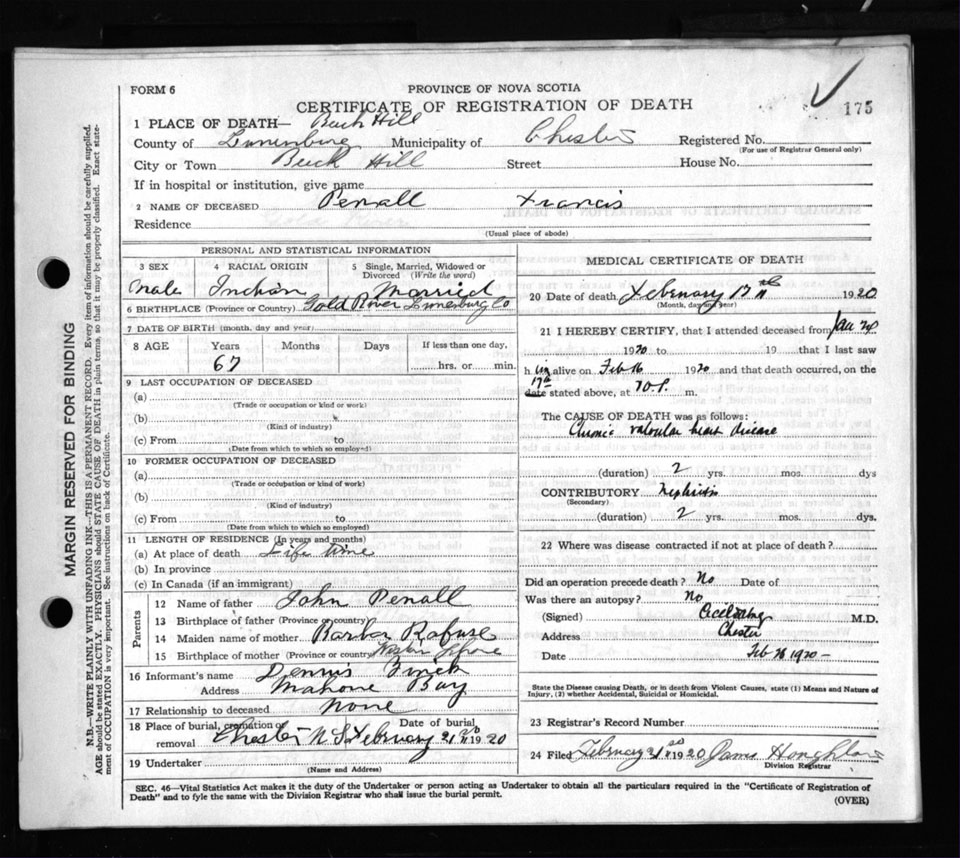 FORM 6
PROVINCE OF NOVA SCOTIA
CERTIFICATE OF REGISTRATION OF DEATH
175
1 PLACE OF DEATH— Hill
County of Lunenburg Municipality of Chester Registered No.
(For use of Registrar General only)
City or Town Hill Street House No.
If in hospital or institution, give name
2 NAME OF DECEASED Penall Francis
Residence
(Usual place of abode)
PERSONAL AND STATISTICAL INFORMATION
3 SEX 4 RACIAL ORIGIN 5 Single, Married, Widowed or Divorced (Write the word)
Male Indian Married
6 BIRTHPLACE (Province or Country) Gold River Lunenburg Co
7 DATE OF BIRTH (month, day and year)
8 AGE Years Months Days If less than one day,
67 hrs. or min.
9 LAST OCCUPATION OF DECEASED
(a)
(Trade or occupation or kind or work)
(b)
(Kind of industry)
(c) From to
(Date from which to which so employed)
10 FORMER OCCUPATION OF DECEASED
(a)
(Trade or occupation or kind of work)
(b)
(Kind of industry)
(c) From to
(Date from which to which so employed)
11 LENGTH OF RESIDENCE (In years and months)
(a) At place of death Life time
(b) In province
(c) In Canada (if an immigrant)
Parents
12 Name of father John Penall
13 Birthplace of father (Province or country)
14 Maiden name of mother Rafuse
15 Birthplace of mother (Province or country)
16 Informant's name Dennis
Address Mahone Bay
17 Relationship to deceased None
18 Place of burial, cremation or removal Chester N S Date of burial February 21 1920
19 Undertaker
(Name and Address)
MEDICAL CERTIFICATE OF DEATH
20 Date of death February 17 1920
(Month, day and year)
21 I HEREBY CERTIFY, that I attended deceased from Jan
1920 to 19 that I last saw
h im alive on Feb 16 1920 and that death occurred, on the
17th
date stated above, at 10 P. m.
The CAUSE OF DEATH was as follows:
Chronic valvular heart disease
(duration) 2 yrs. mos. dys
CONTRIBUTORY Nephritis
(Secondary)
(duration) 2 yrs. mos. dys.
22 Where was disease contracted if not at place of death?
Did an operation precede death? No Date of
Was there an autopsy? No
(Signed) M.D.
Address Chester
Date Feb 1920
State the Disease causing Death, or in death from Violent Causes, state (1) Means and Nature of
Injury, (2) whether Accidental, Suicidal or Homicidal.
23 Registrar's Record Number
24 Filed February 21 1920
Division Registrar
SEC. 46—Vital Statistics Act makes it the duty of the Undertaker or person acting as Undertaker to obtain all the particulars required in the "Certificate of Registration of
Death" and to fyle the same with the Division Registrar who shall issue the burial permit.
(OVER)
MARGIN RESERVED FOR BINDING
N.B.—WRITE PLAINLY WITH UNFADING INK—THIS IS A PERMANENT RECORD. Every item of information should be carefully supplied.
AGE should be stated EXACTLY. PHYSICIANS should STATE CAUSE OF DEATH in plain terms, so that it may be properly classified. Exact state-
ment of OCCUPATION is very important. See instructions on back of Certificate.